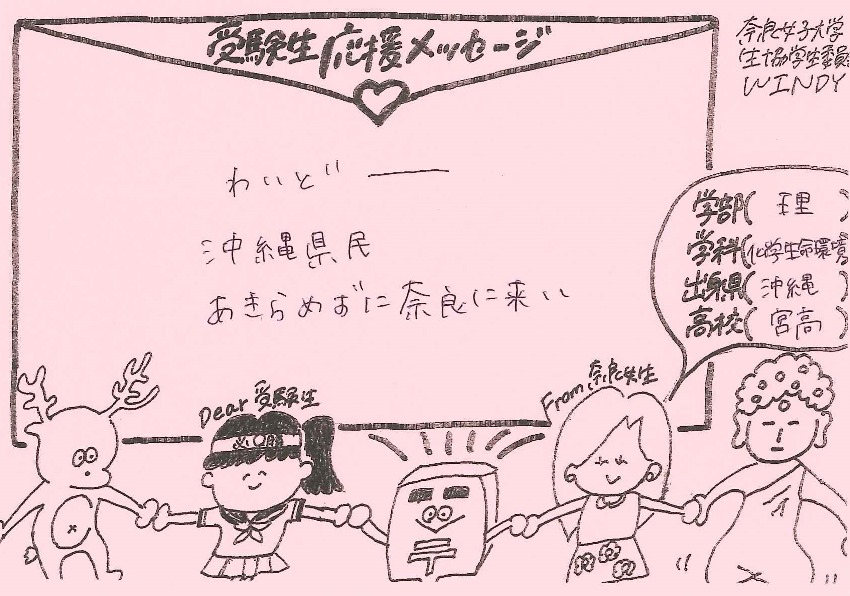 受験生応援メッセージ
奈良女子大学
生協学生委員
WINDY
わいどー
沖縄県民
あきらめずに奈良に来い
学部(理)
学科(化学生命環境)
出身県(沖縄)
高校(宮高)
Dear 受験生
From 奈良女生
必〇勝
〒